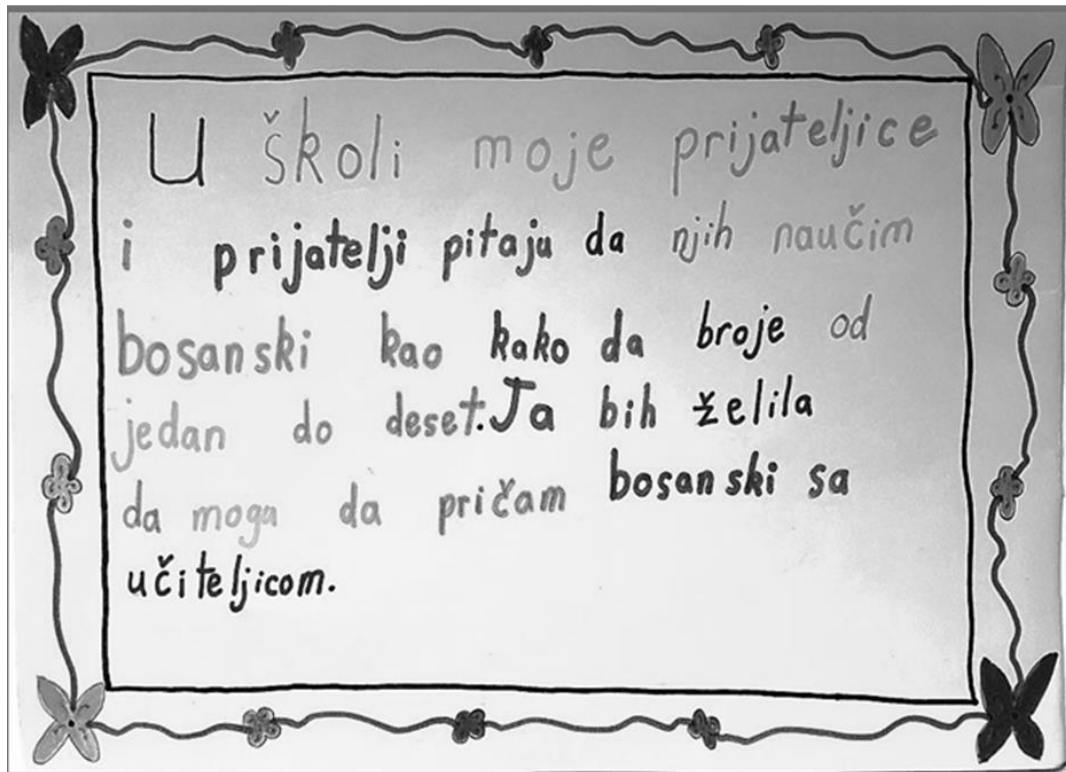 U školi moje prijateljice
i prijatelji pitaju da njih naučim
bosanski kao kako da broje od
jedan do deset. Ja bih želila
da mogu da pričam bosanski sa
učiteljicom.